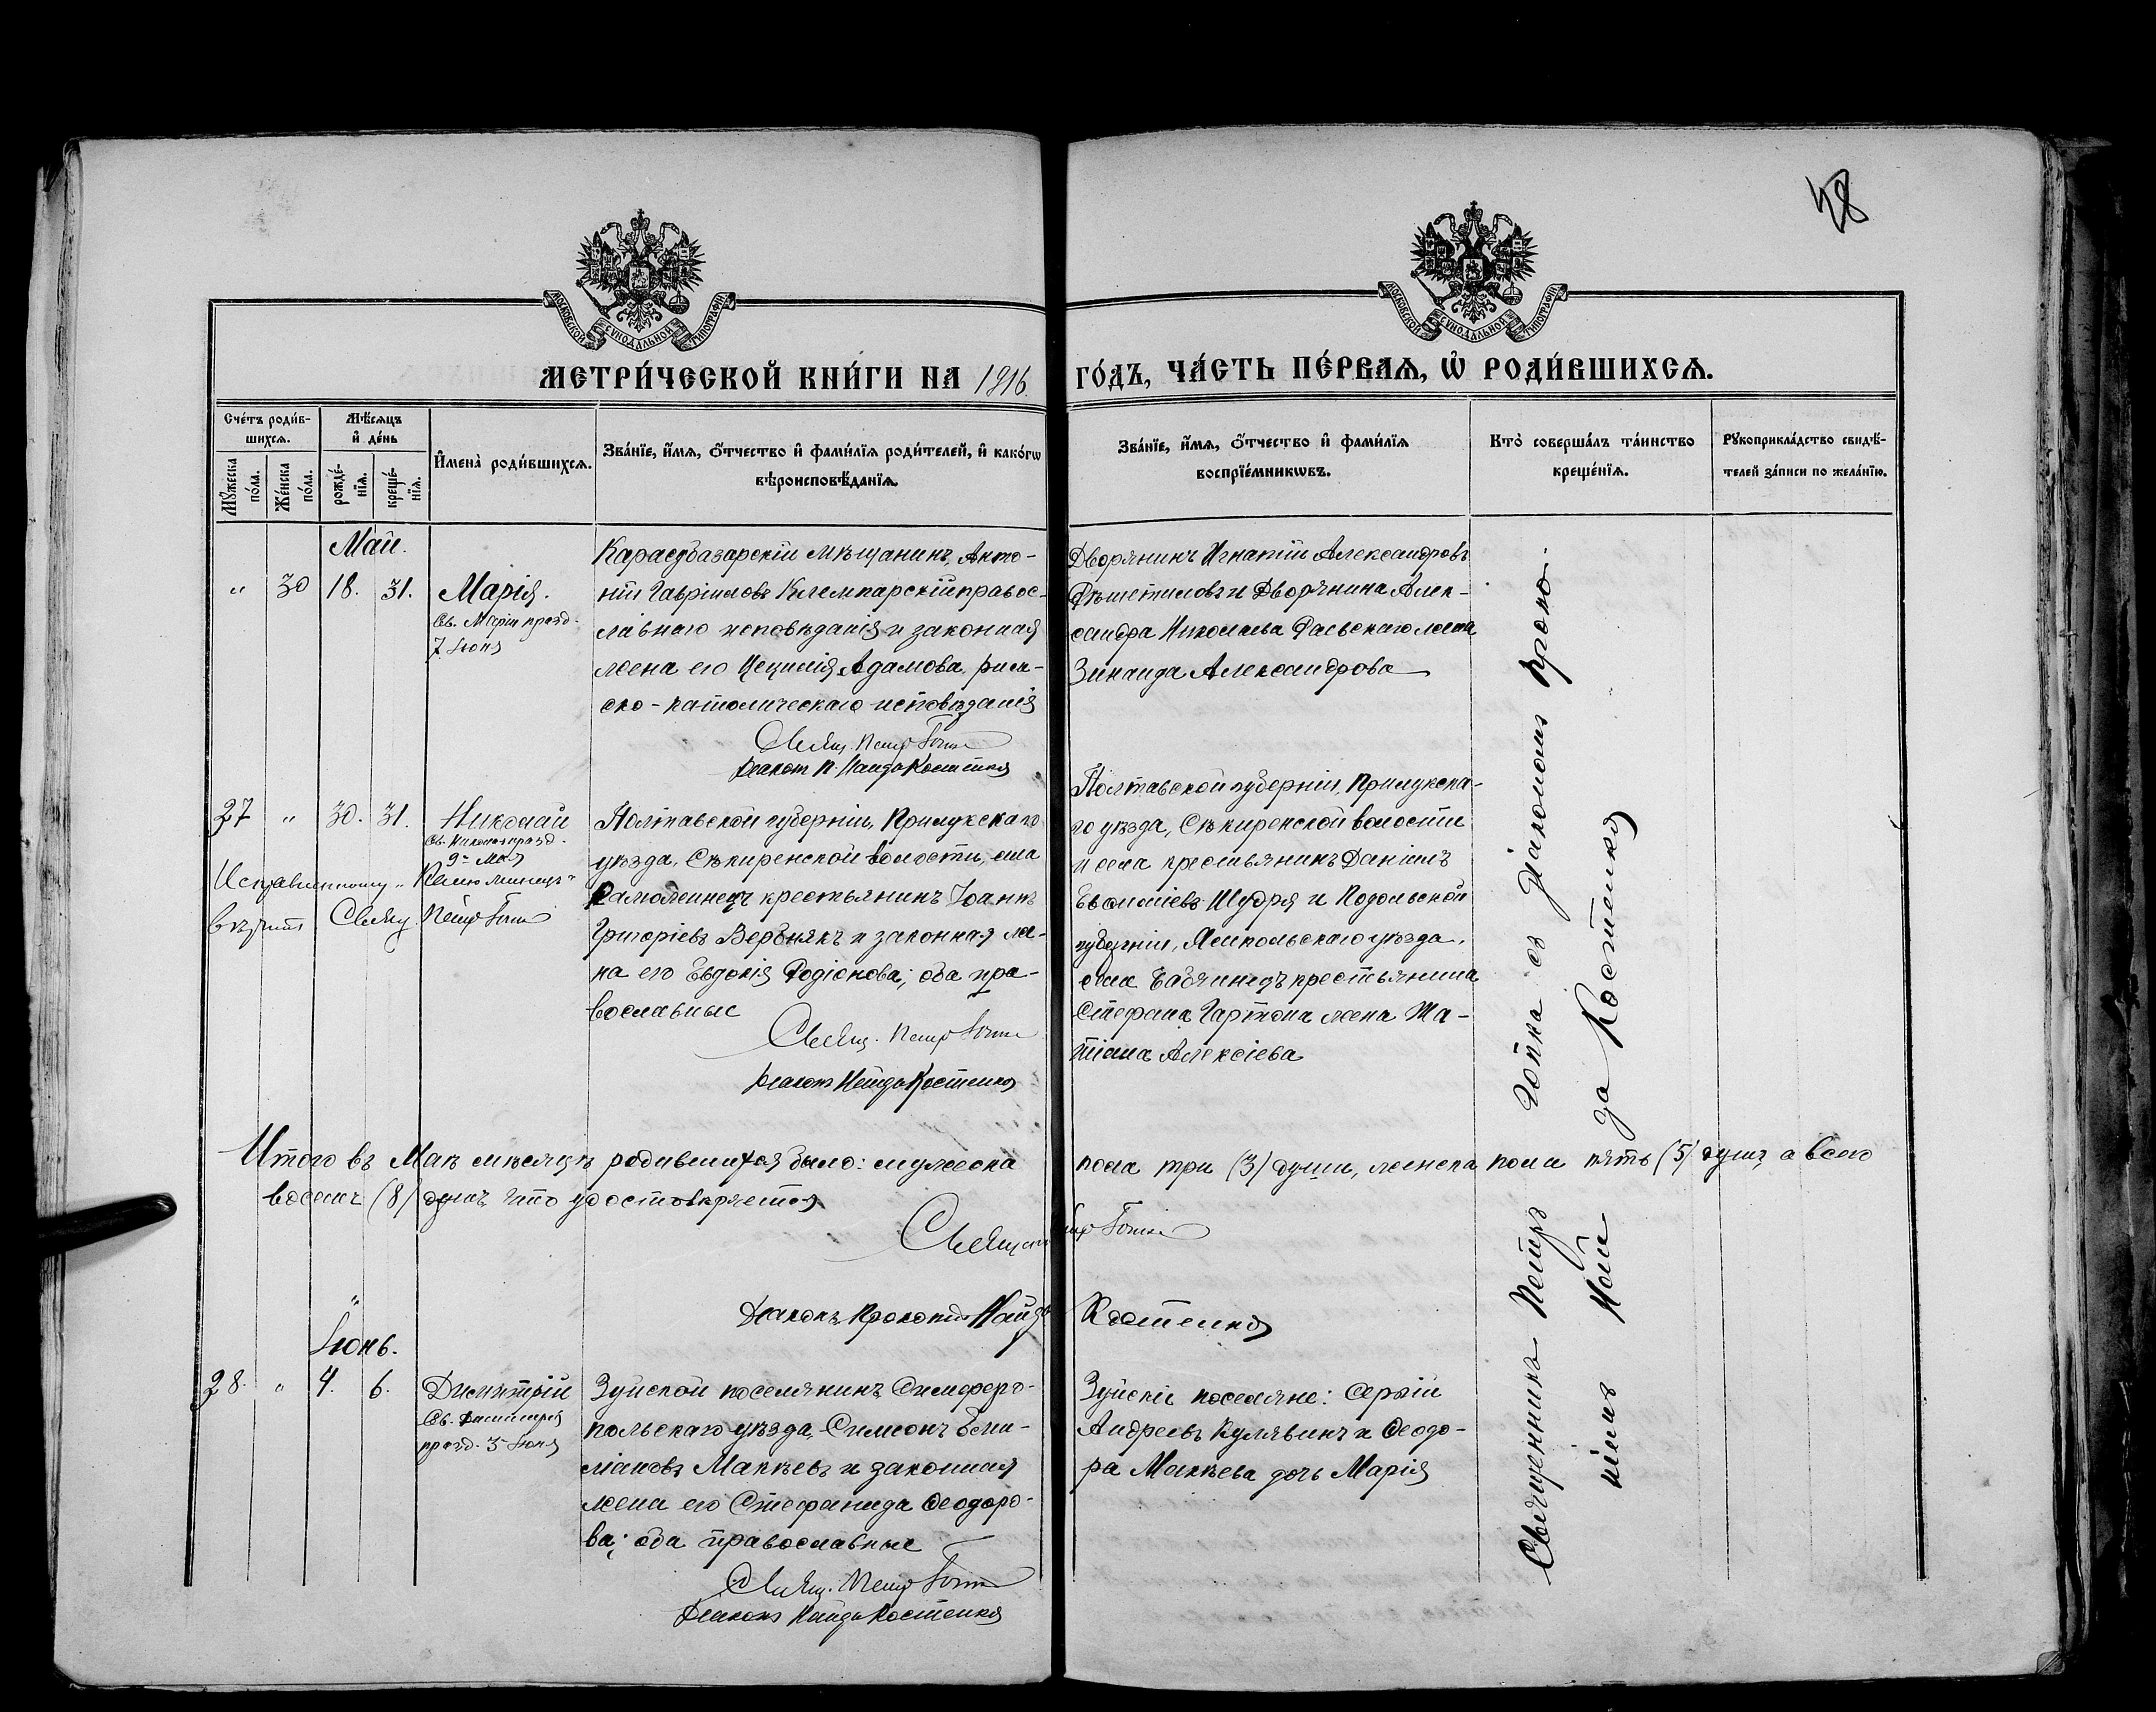 48
МОСКОВСКОЙ СѴНОДАЛЬНОЙ ТИПОГРАФІИ
МОСКОВСКОЙ СѴНОДАЛЬНОЙ ТИПОГРАФІИ
МЕТРИ́ЧЕСКОЙ КНИ́ГИ НА 1916 ГО́ДЪ, ЧА́СТЬ ПЕ́РВАѦ, Ѡ҆ РОДИ́ВШИХСѦ.
Сче́тъ роди́в-
шихсѧ.
Мꙋ́жеска по́ла.
Же́нска по́ла.
Мѣ́сѧцъ
и҆ де́нь
рожде́-
нїѧ.
креще́-
нїѧ.
И҆мена̀ роди́вшихсѧ.
Зва́нїе, и҆́мѧ, о҆́тчество и҆ фами́лїѧ роди́телей, и҆ како́гѡ
вѣроисповѣ́данїѧ.
Зва́нїе, и҆́мѧ, о҆́тчество и҆ фами́лїѧ
воспрїе́мникѡвъ.
Кто̀ соверша́лъ та́инство
креще́нїѧ.
Рꙋкоприкла́дство свидѣ́-
телей за́писи по жела́нїю.
Май.
„ 30 18. 31. Марія.
Св. Маріи празд.
7 Іюня
Карасубазарскій мѣщанинъ, Анто-
ній Гавріиловъ Клемпарскій правос-
лавнаго исповѣданія и законная
жена его Цецилія Адамова рим-
ско-католическаго исповѣданія
Свящ. Петръ Готка
Діаконъ П. Найда Костенко
Дворянинъ Игнатій Александровъ
Рѣшетиловъ и Дворянина Алек-
сандра Николаева Раевскаго жена
Зинаида Александрова
27 „ 30. 31. Николай
Св. Николая празд.
9го Мая
Исправленному „Камюжинецъ"
вѣрить Свящ. Петръ Готка
Полтавской губерніи, Прилукскаго
уѣзда, Сѣкиренской волости, села
крестьянинъ Іоаннъ
Григоріевъ Вербнякъ и законная же-
на его Евдокія Родіонова; оба пра-
вославные
Свящ. Петръ Готка
Діаконъ Найда Костенко
Полтавской губерніи, Прилукска-
го уѣзда, Сѣкиренской волости
и села крестьянинъ Даніилъ
Шудря и Подольской
губерніи, Ямпольскаго уѣзда,
села крестьянина
Стефана Гартона жена Та-
тіана Алексіева
Итого въ Маѣ мѣсяцѣ родившихся было: мужеска пола три (3) души, женска пола пять (5) душъ а всего
восемь (8) душъ что удостовѣряется
Священникъ Петръ Готка
Діаконъ Прокопій Найда Костенко
Іюнь.
28. „ 4. 6. Димитрій
Св. Димитрія
празд. 3 Іюня
Зуйской поселянинъ Симферо-
польскаго уѣзда, Симеонъ Еми-
ліановъ Макѣевъ и законная
жена его Стефанида Ѳеодоро-
ва; оба православные
Свящ. Петръ Готка
Діаконъ Найда Костенко
Зуйскіе поселяне: Сергій
Андреевъ Кулявинъ и Ѳеодо-
ра Макѣева дочь Марія
Священникъ Петръ Готка съ діакономъ Проко-
піемъ Найда Костенко